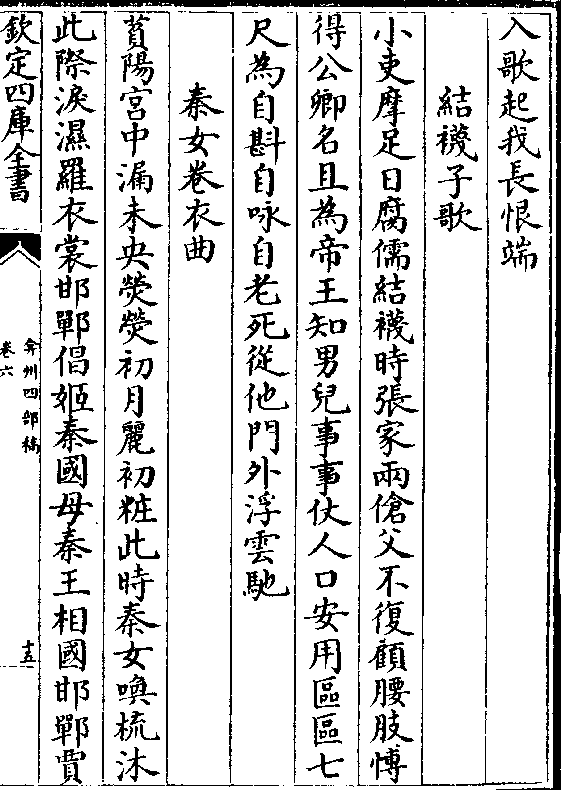 入歌起我長恨端
結襪子歌
小吏摩足日腐儒結襪時張家兩傖父不復顧腰肢慱
得公卿名且為帝王知男兒事事仗人口安用區區七
尺為自斟自咏自老死從他門外浮雲馳
秦女卷衣曲
萯陽宮中漏未央熒熒初月麗初粧此時秦女喚梳沐
此際淚濕羅衣裳邯鄲倡姬秦國母秦王相國邯鄲賈
欽定四庫全書
弇州四部稿
卷六
十五